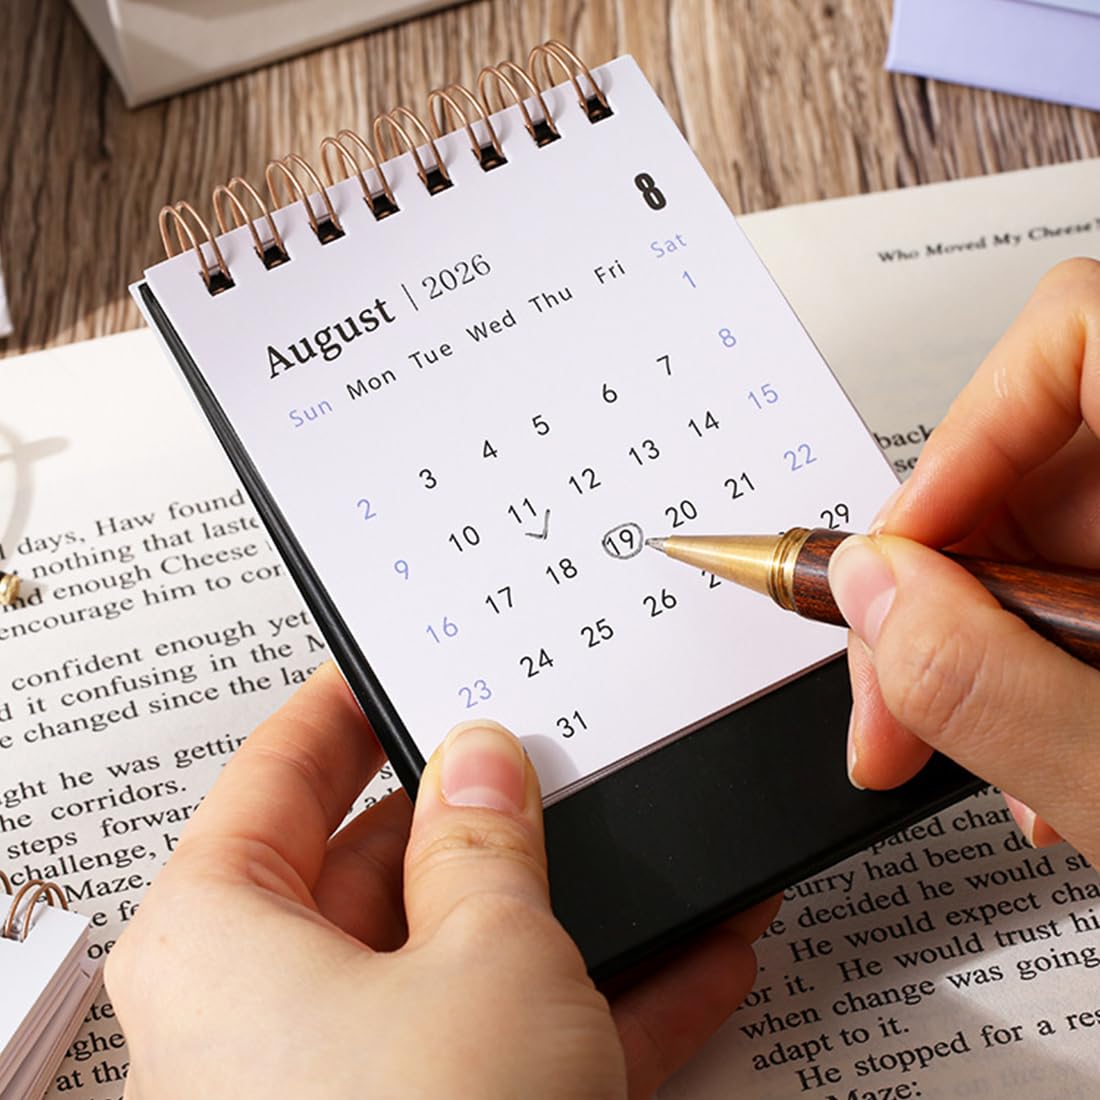 8
August | 2026
Sun Mon Tue Wed Thu Fri Sat
1
2 3 4 5 6 7 8
9 10 11 12 13 14 15
16 17 18 19 20 21 22
23 24 25 26 29
31
Who Moved My Cheese?
back
days, Haw found
nothing that
enough Cheese
encourage him to
confident enough yet
it confusing in the
changed since the
he was
corridors.
steps
challenge,
Maze.
had been
decided he would
He would expect
it. He would trust
when change was going
adapt to it.
He stopped for a
Maze: